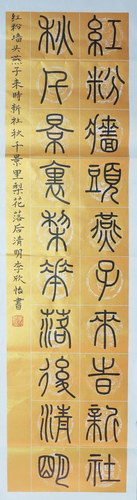 紅粉牆頭燕子來時新社
秋千景裏棃花落後清明
红粉墙头燕子来時新社秋千景里梨花落后清明李欣怡書